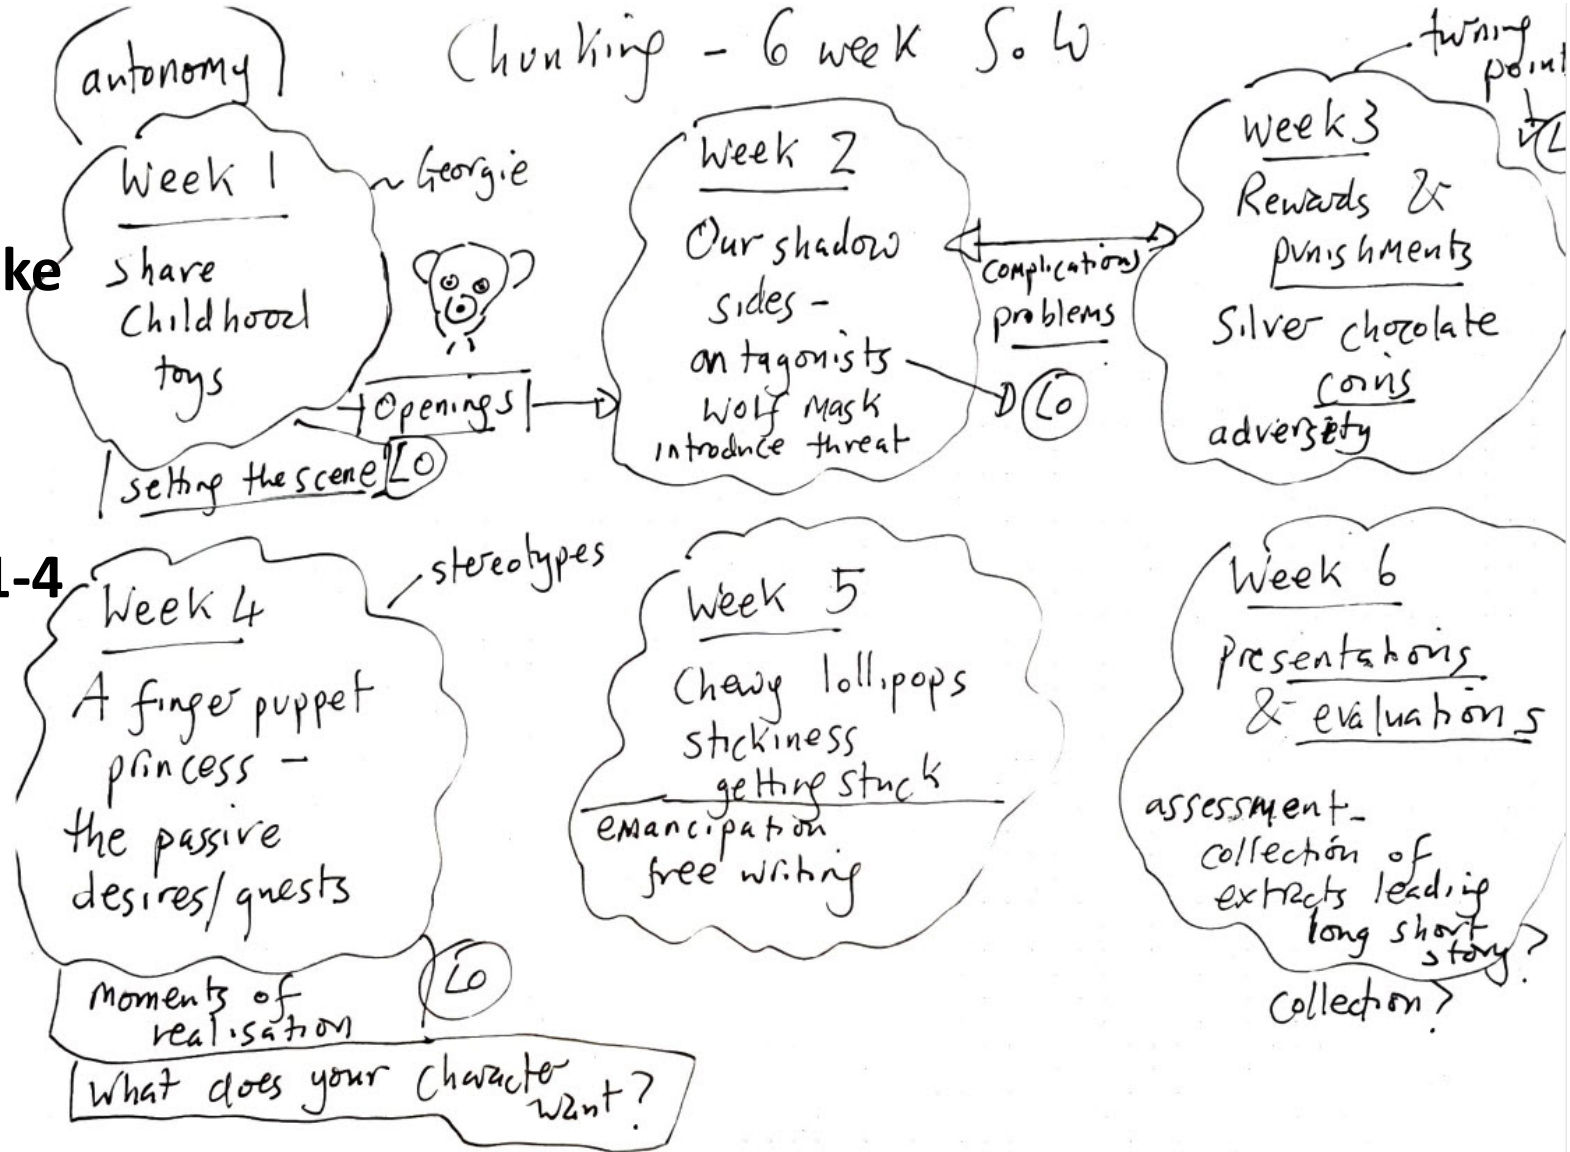 autonomy
Chunking - 6 week S.o W
turning
point
L
Week 1
~ Georgie
share
Childhood
toys
Openings
setting the scene LO
Week 2
Our shadow
sides -
antagonists
Wolf Mask
introduce threat
complications
problems
LO
Week 3
Rewards &
punishments
Silver chocolate
coins
adversity
ke
1-4
stereotypes
Week 4
A finger puppet
princess -
the passive
desires/quests
LO
Moments of
realisation
What does your Character
want?
Week 5
Chewy lollipops
stickiness
getting stuck
emancipation
free writing
Week 6
presentations
& evaluations
assessment-
collection of
extracts leading
long short
story?
Collection?